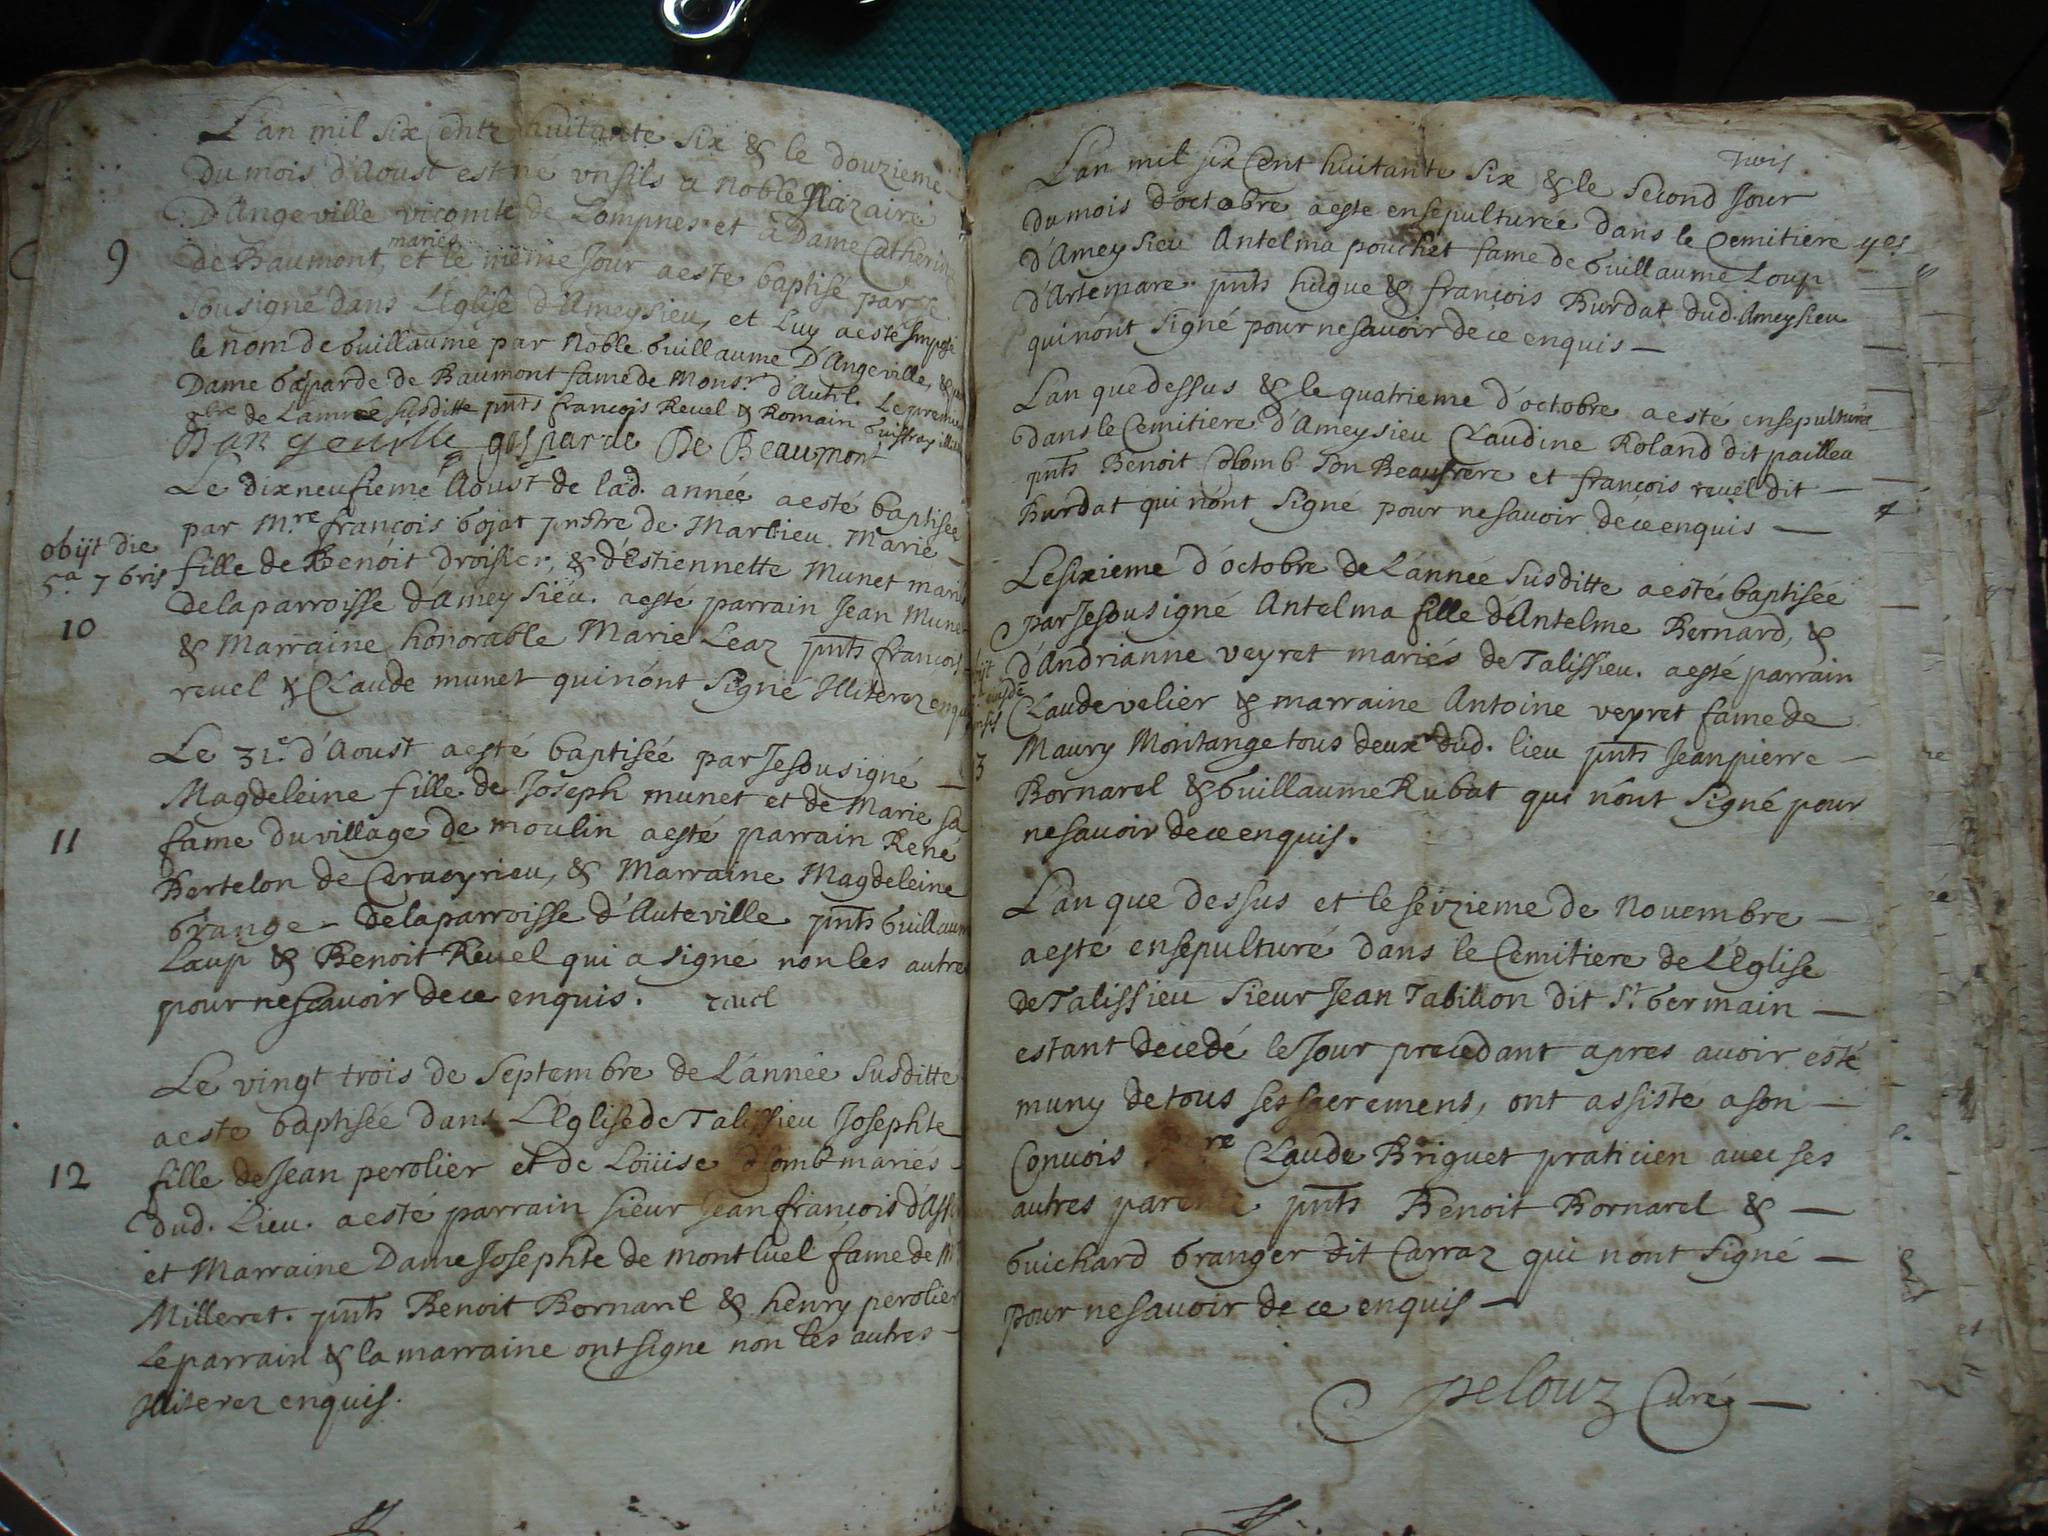 L'an mil six Cents huitante six & le douzieme
du mois d'Aoust est né un fils a Noble Nazaire
D'Angeville vicomte de Lompnes et à Dame Catherine
9
de Baumont, mariés et le même Jour a esté baptisé par Je
sousigné dans L'Eglise d'Ameysieu, et Luy a esté Imposé
le nom de Guillaume par Noble Guillaume D'Angeville, &
Dame Gasparde de Baumont fame de Mons.r d'Autil. Le premier
de L'année susditte pnts françois Revel & Romain
Dangeville gasparde De Beaumont
Le dixneufieme Aoust de lad. année a esté baptisée
par M.re françois Gojat de Marlieu Marie
obijt die
5.a 7bris
fille de Benoit Droisier, & d'Estiennette Munet mariés
de la parroisse d'Ameysieu. a esté parrain Jean Munet
10
& Marraine honorable Marie Leaz pnts françois
revel & Claude munet qui n'ont signé Illiterez enquis
Le 31.e d'Aoust a esté baptisée par Je sousigné
Magdeleine fille de Joseph munet et de Marie sa
11
fame du village de moulin a esté parrain René
Bertelon de Cerveyrieu, & Marraine Magdeleine
Grange de la parroisse d'Auteville pnts Guillaume
Laup & Benoit Revel qui a signé non les autres
pour ne scavoir de ce enquis. revel
Le vingt trois de Septembre de L'année susditte
a este baptisée dans L'Eglise de Talissieu Josephte
12
fille de Jean perolier et de Loüise Colomb mariés
dud. Lieu. a esté parrain sieur Jean françois
et Marraine Dame Josephte de montluel fame de
Milleret. pnts Benoit Bornarel & henry perolier
Le parrain & la marraine ont signe non les autres
Illiterez enquis.
Trois
L'an mil six Cent huitante six & le second Jour
du mois d'octobre a este ensepulturée dans le Cemitiere
d'Ameysieu Antelma pouchet fame de Guillaume Loup
d'Artemare. pnts hugue & françois Burdat dud. Ameysieu
qui n'ont signé pour ne savoir de ce enquis
L'an que dessus & le quatrieme d'octobre a esté ensepulturée
dans le Cemitiere d'Ameysieu Claudine Roland dit
pnts Benoit Colomb son Beaufrere et françois revel dit
Burdat qui n'ont signé pour ne savoir de ce enquis
Le sixieme d'octobre de L'année susditte a esté baptisée
par Je sousigné Antelma fille d'Antelme Bernard, &
d'Andrianne veyret mariés de Talissieu. a esté parrain
Claude velier & marraine Antoine veyret fame de
3
Maury Montange tous deux dud. lieu pnts Jean pierre
Bornarel & Guillaume Rubat qui n'ont signé pour
ne savoir de ce enquis.
L'an que dessus et le seizieme de Novembre
a este ensepulturé dans le Cemitiere de L'Eglise
de Talissieu Sieur Jean Tabillon dit S.t Germain
estant decedé le Jour precedant apres avoir esté
muny de tous ses sacremens, ont assisté a son
Convois Claude Briguet praticien avec ses
autres parents pnts Benoit Bornarel &
Guichard Granger dit Carraz qui n'ont signé
pour ne savoir de ce enquis
pelouz Curé